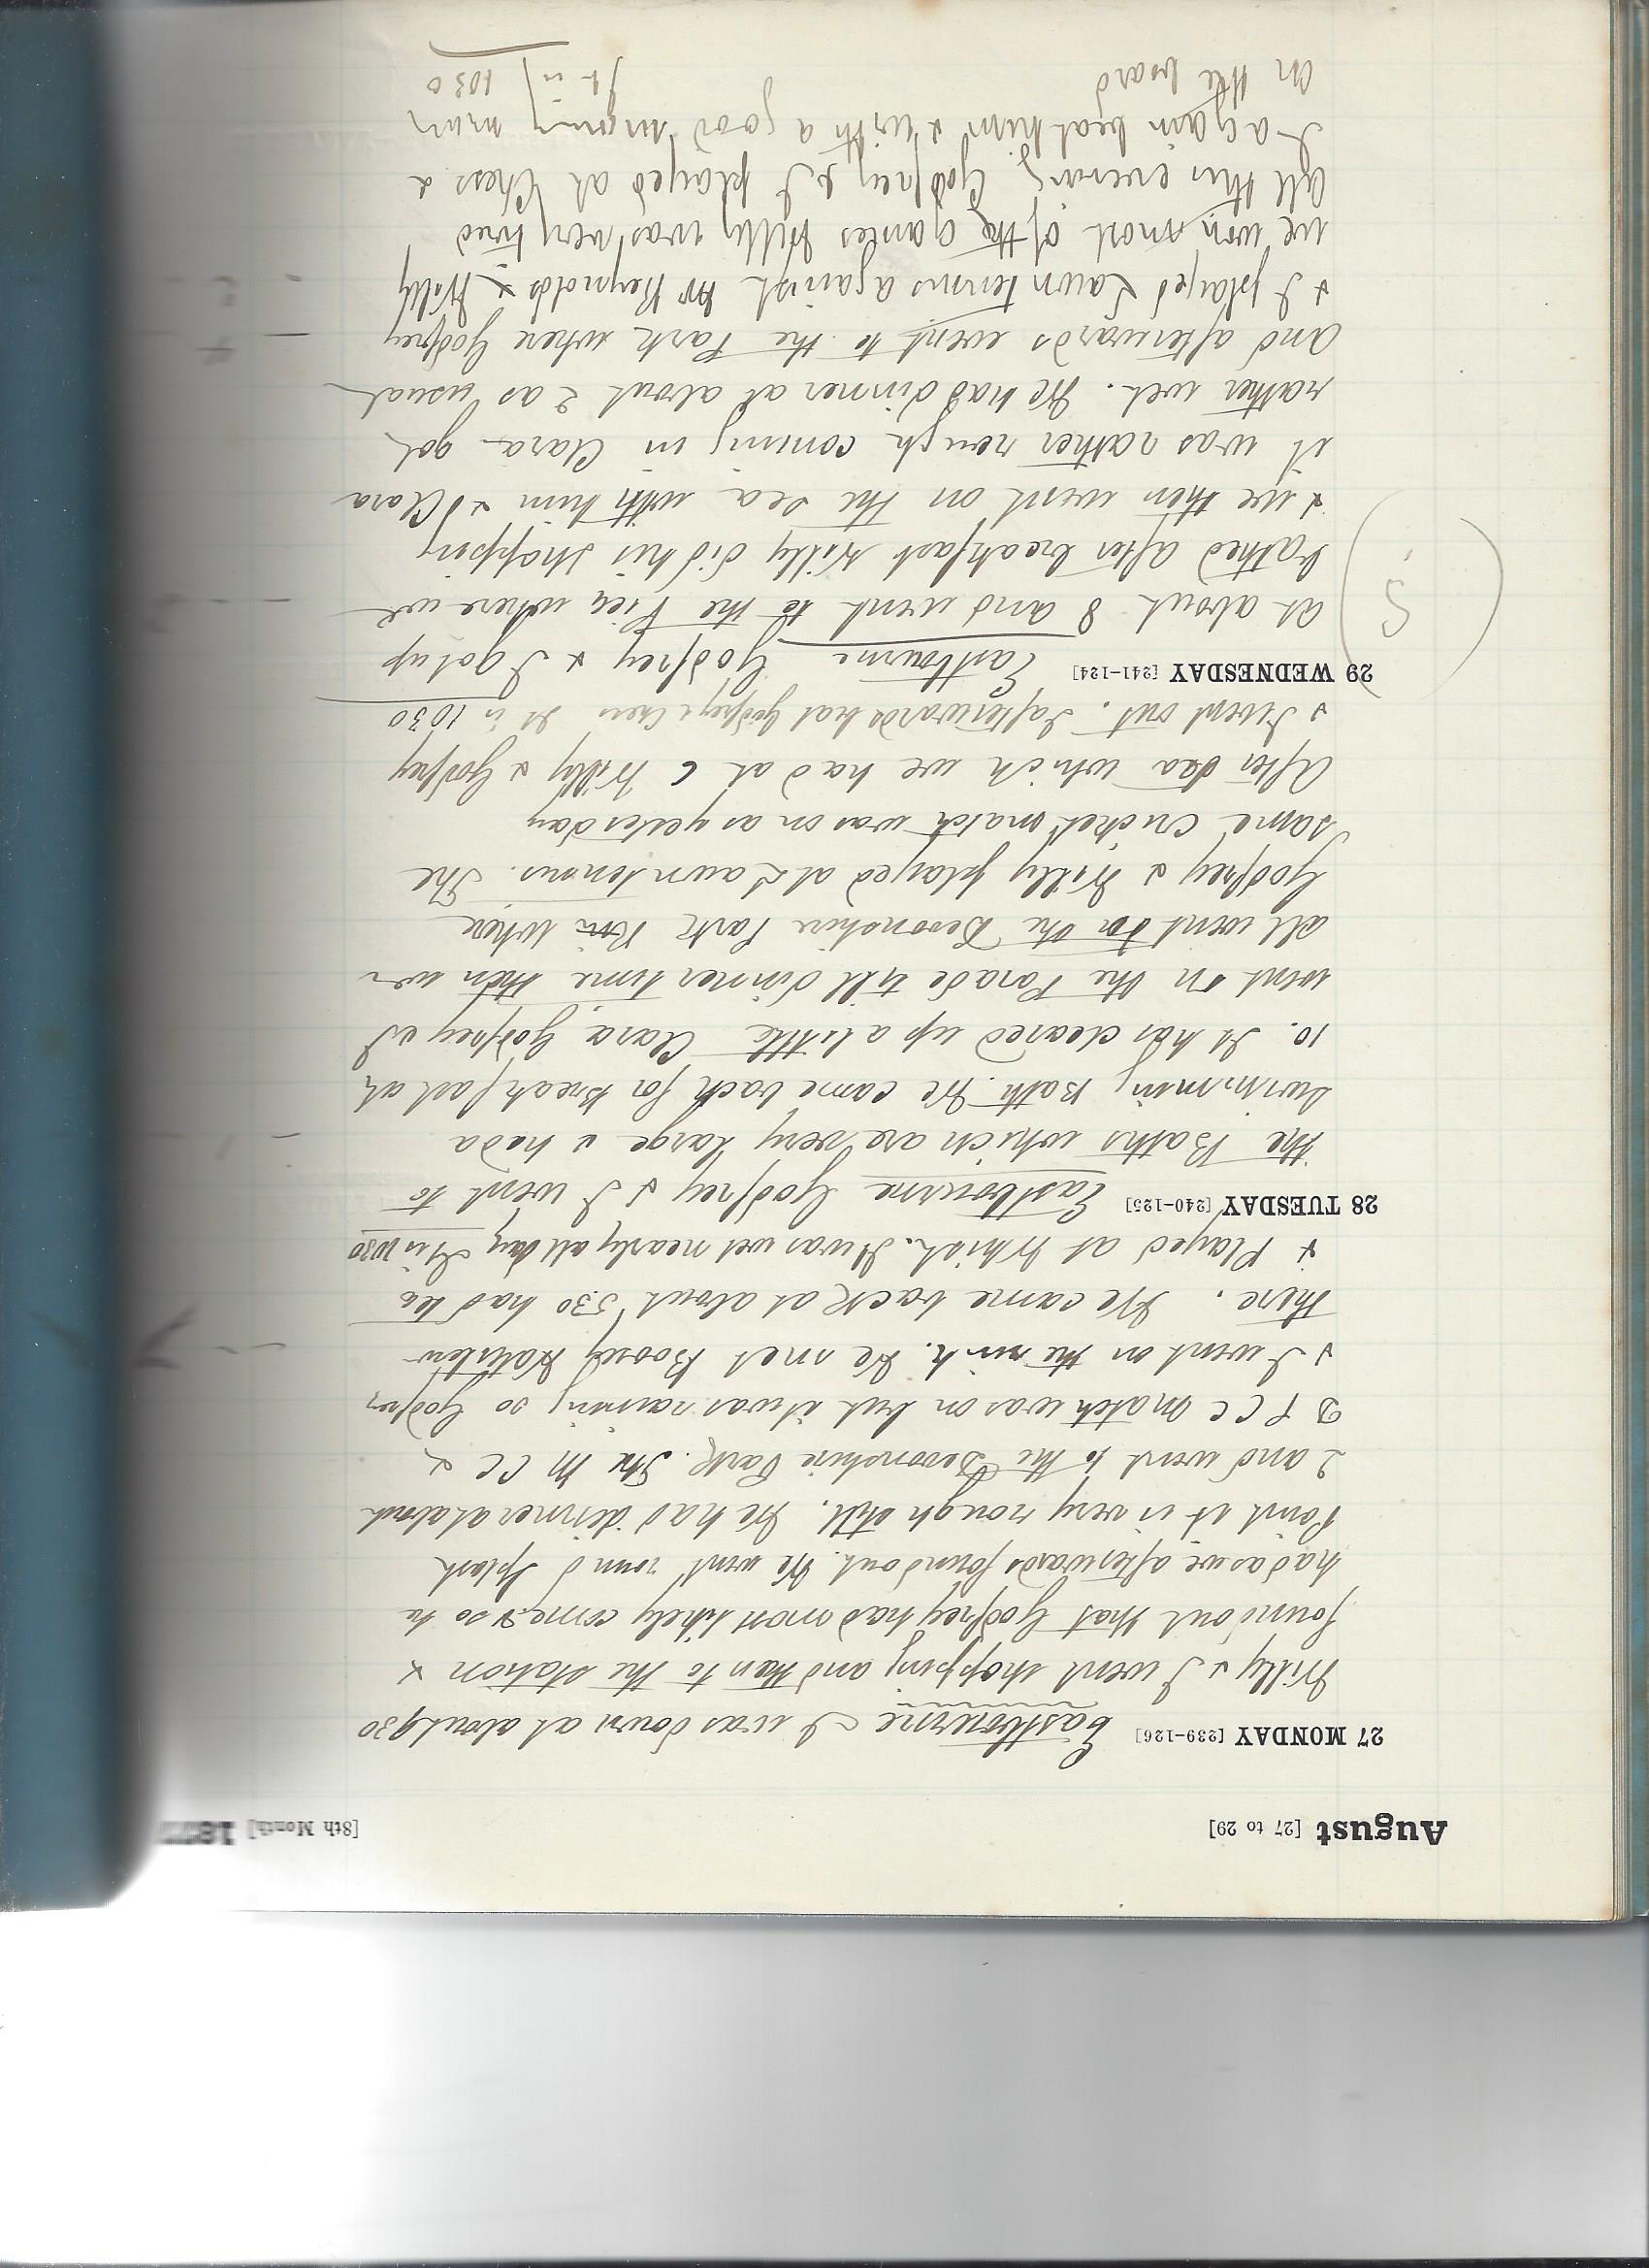 August [27 to 29] [8th Month] 187
27 MONDAY [239-126] Eastbourne I was down at about 9 30
Willy & I went shopping and then to the station &
found out that Godfrey had most likely come & so he
had as we afterwards found out. We went round Splash
Point it is very rough still. We had dinner at about
2 and went to the Devonshire Park. The M C C &
D P C C match was on but it was raining so Godfrey
& I went on the rink. We met Boosey
there. We came back at about 5.30 had tea
& Played at Whist. It was wet nearly all day It is 1030
28 TUESDAY [240-125] Eastbourne Godfrey & I went to
the Baths which are very large & had a
swimming Bath. We came back for Breakfast at
10. It has cleared up a little Clara, Godfrey & I
went on the Parade till dinner time then we
all went to the Devonshire Park where
Godfrey & Willy played at Lawn tennis. The
same cricket match was on as yesterday
After tea which we had at 6 Willy & Godfrey
& I went out. I afterwards beat Godfrey at Chess It is 1030
29 WEDNESDAY [241-124] Eastbourne Godfrey & I got up
at about 8 and went to the Pier where we
bathed after breakfast Willy did his shopping
& we then went on the sea with him & Clara
it was rather rough coming in Clara got
rather wet. We had dinner at about 2 as usual
and afterwards went to the Park where Godfrey
& I played Lawn tennis against Mr Reynolds & Willy
we won most of the games Willy was very tired
All this evening Godfrey & I played at Chess &
I again beat him & with a good many men
on the board It is 1030